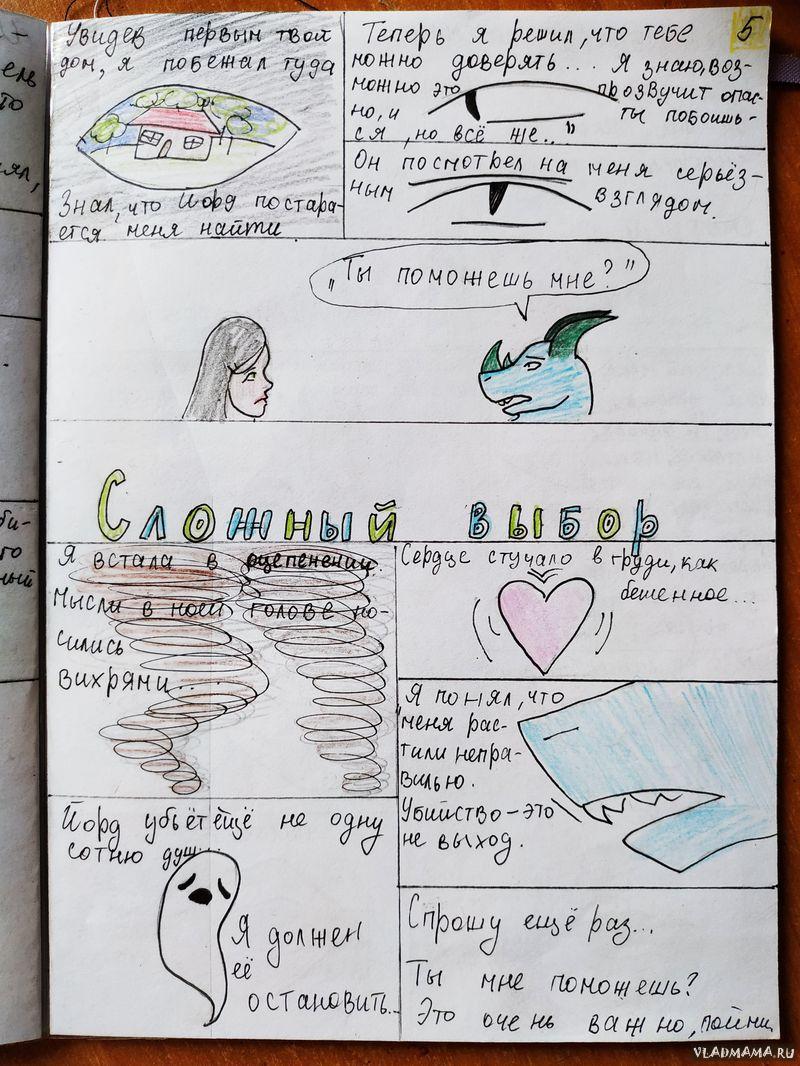 Увидев первым твой
дом, я побежал туда
Знал, что Йорд постара-
ется меня найти
5
Теперь я решил, что тебе
можно доверять... Я знаю, воз-
можно это прозвучит опас-
но, и ты побоишь-
ся, но всё же.."
Он посмотрел на меня серьёз-
ным взглядом.
„Ты поможешь мне?"
Сложный выбор
Я встала в оцепенении.
Мысли в моей голове но-
сились
вихрями...
Сердце стучало в груди, как
бешенное...
Я понял, что
меня рас-
тили непра-
вилью.
Убийство – это
не выход.
Йорд убьёт ещё не одну
сотню душ...
Я должен
её
остановить...
Спрошу ещё раз...
Ты мне поможешь?
Это очень важно, пойми
VLADMAMA.RU